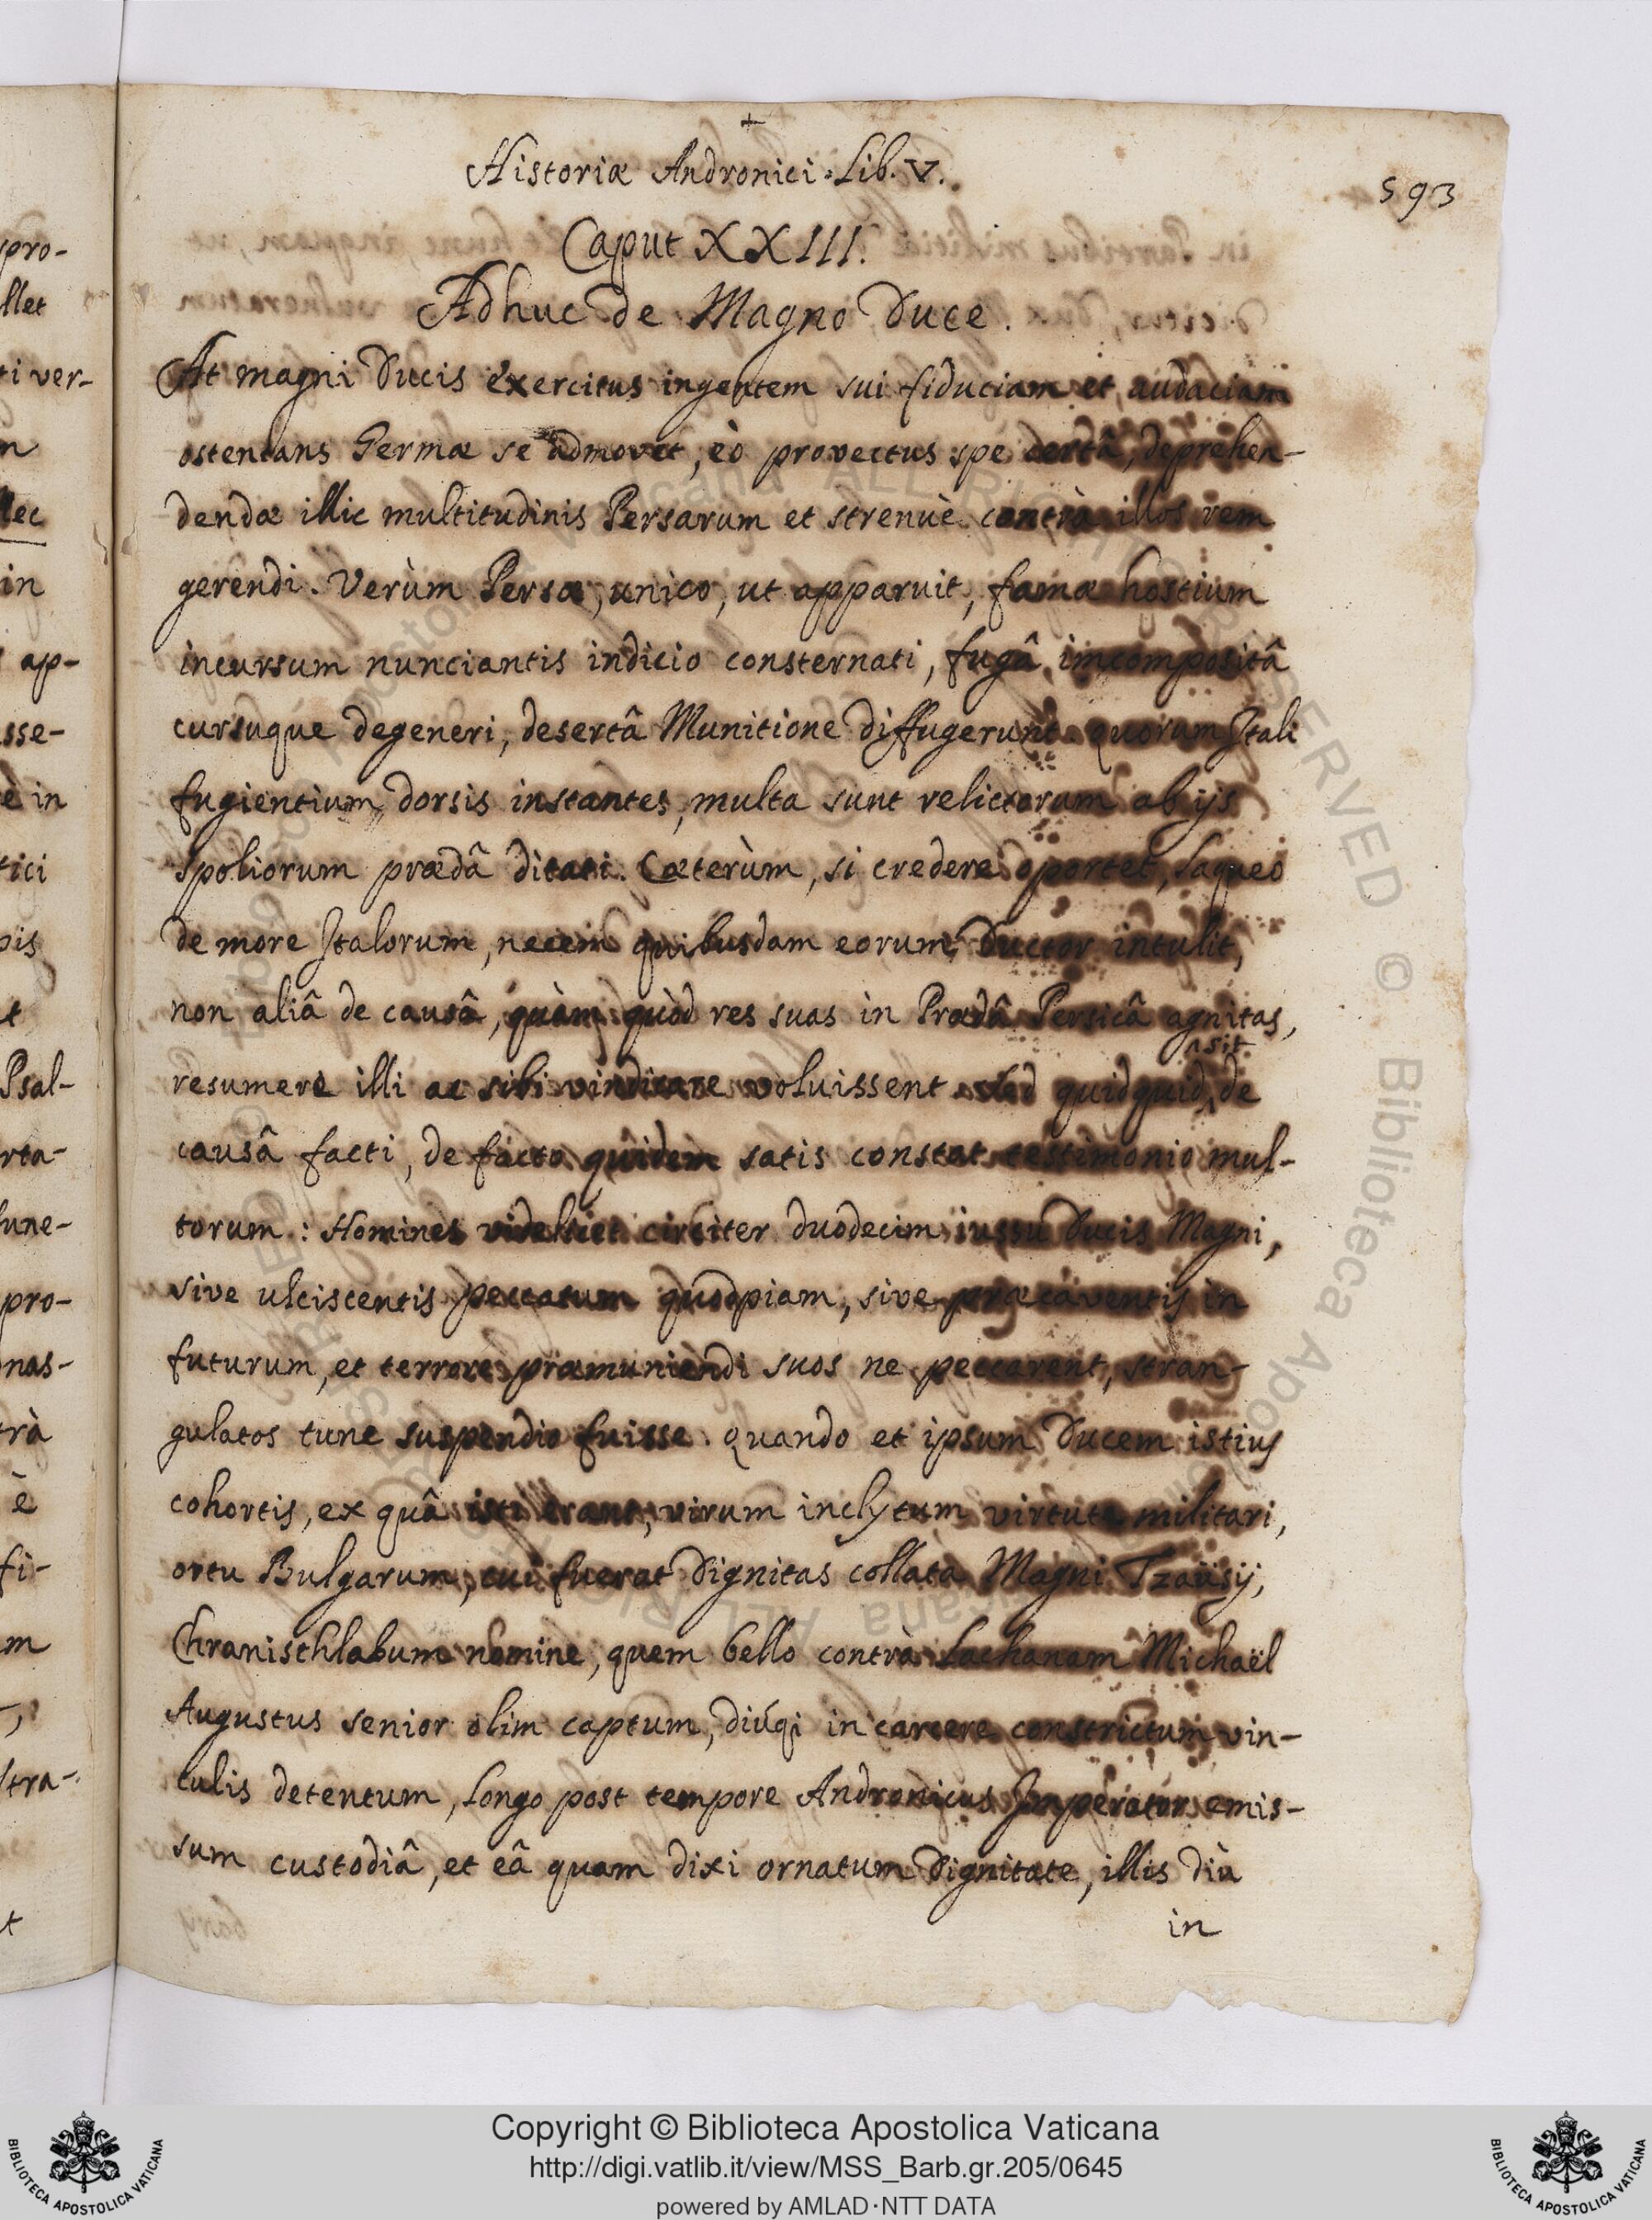 +
Historiæ Andronici. Lib. V.
593
Caput XXIII.
Adhuc de Magno Duce.
At magni Ducis exercitus ingentem sui fiduciam et audaciam
ostentans Germæ se admovet, èo provectus spe certâ, deprehen-
dendæ illic multitudinis Persarum et strenuè contrà illos rem
gerendi. Verùm Persæ, unico, ut apparuit, famæ hostium
incursum nunciantis indicio consternati, fugâ imcompositâ
cursuque degeneri, desertâ Munitione diffugerunt quorum Itali
fugientium dorsis instantes, multa sunt relictorum ab ijs
spoliorum prædâ ditati. Cæterùm, si credere oportet, laqueo
de more Italorum, necem quibusdam eorum Ductor intulit,
non aliâ de causâ, quàm quòd res suas in Prædâ Persicâ agnitas,
resumere illi ac sibi vindicare voluissent. sed quidquid sit de
causâ facti, de facto quidem satis constat testimonio mul-
torum: Homines videlicet circiter duodecim iussu Ducis Magni,
sive ulciscentis peccatum quodpiam, sive præcaventis in
futurum, et terrore præmuniendi suos ne peccarent, stran-
gulatos tunc suspendio fuisse. quando et ipsum Ducem istius
cohortis, ex quâ isti erant, virum inclytum virtute militari,
ortu Bulgarum, cui fuerat Dignitas collata Magni Tzaüsij,
Chranisthlabum nomine, quem bello contrà Lachanam Michaël
Augustus senior olim captum, diúqi in carcere constrictum vin-
culis detentum, longo post tempore Andronicus Imperator emis-
sum custodiâ, et eâ quam dixi ornatum Dignitate, illis diu
in
pro-
llet
ti ver-
in
ap-
sse-
è in
tici
Psal-
rta-
lune-
pro-
nas-
trà
è
fi-
m
stra-
Copyright © Biblioteca Apostolica Vaticana
http://digi.vatlib.it/view/MSS_Barb.gr.205/0645
powered by AMLAD·NTT DATA
BIBLIOTECA APOSTOLICA VATICANA
BIBLIOTECA APOSTOLICA VATICANA